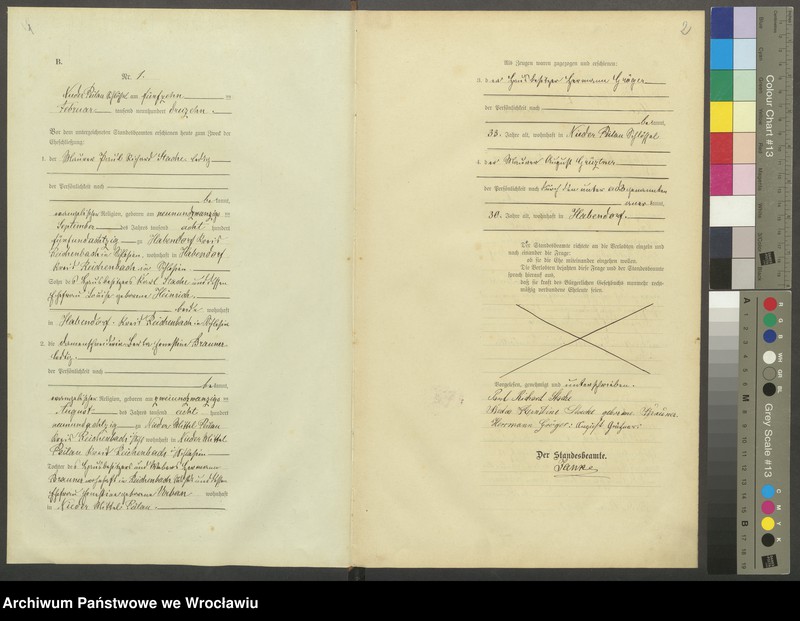 B.
Nr. 1.
Nieder Peilau Schlössel am fünfzehn ten
Februar tausend neunhundert dreizehn.
Vor dem unterzeichneten Standesbeamten erschienen heute zum Zweck der
Eheschließung:
1. der Maurer Paul Richard Stache ledig
der Persönlichkeit nach
be kannt,
evangelischer Religion, geboren am neunundzwanzigs ten
September des Jahres tausend acht hundert
fünfundachtzig zu Habendorf Kreis
Reichenbach in Schlesien, wohnhaft in Habendorf
Kreis Reichenbach in Schlesien
Sohn des Hausbesitzers Karl Stache und dessen
Ehefrau Louise geborene Heinrich
beide wohnhaft
in Habendorf Kreis Reichenbach in Schlesien
2. die Damenschneiderin Berta Ernestine Brauner
ledig.
der Persönlichkeit nach
be kannt,
evangelischer Religion, geboren am zweiundzwanzigs ten
August des Jahres tausend acht hundert
neunundachtzig zu Nieder Mittel Peilau
Kreis Reichenbach, wohnhaft in Nieder Mittel
Peilau Kreis Reichenbach Schlesien
Tochter des Hausbesitzers und Webers Hermann
Brauner wohnhaft in Reichenbach und dessen
Ehefrau Ernestine geborene Urban wohnhaft
in Nieder Mittel Peilau.
2
Als Zeugen waren zugezogen und erschienen:
3. der Hausbesitzer Hermann Gröger
der Persönlichkeit nach
be kannt,
33. Jahre alt, wohnhaft in Nieder Peilau Schlössel
4. der Maurer August
der Persönlichkeit nach durch den unter genannten
aner kannt,
30. Jahre alt, wohnhaft in Habendorf.
Der Standesbeamte richtete an die Verlobten einzeln und
nach einander die Frage:
ob sie die Ehe miteinander eingehen wollen.
Die Verlobten bejahten diese Frage und der Standesbeamte
sprach hierauf aus,
daß sie kraft des Bürgerlichen Gesetzbuchs nunmehr recht-
mäßig verbundene Eheleute seien.
Vorgelesen, genehmigt und unterschrieben.
Paul Richard Stache
Berta Ernestine Stache geborene Brauner
Hermann Gröger: August
Der Standesbeamte.
Colour Chart #13
Blue
Cyan
Green
Yellow
Red
Magenta
White
3/Color
Black
Grey Scale #13
A 1 2 3 4 5 6 M 8 9 10 11 12 13 14 15 B 17 18 19
R G B WH GR BL
C M Y K
Archiwum Państwowe we Wrocławiu